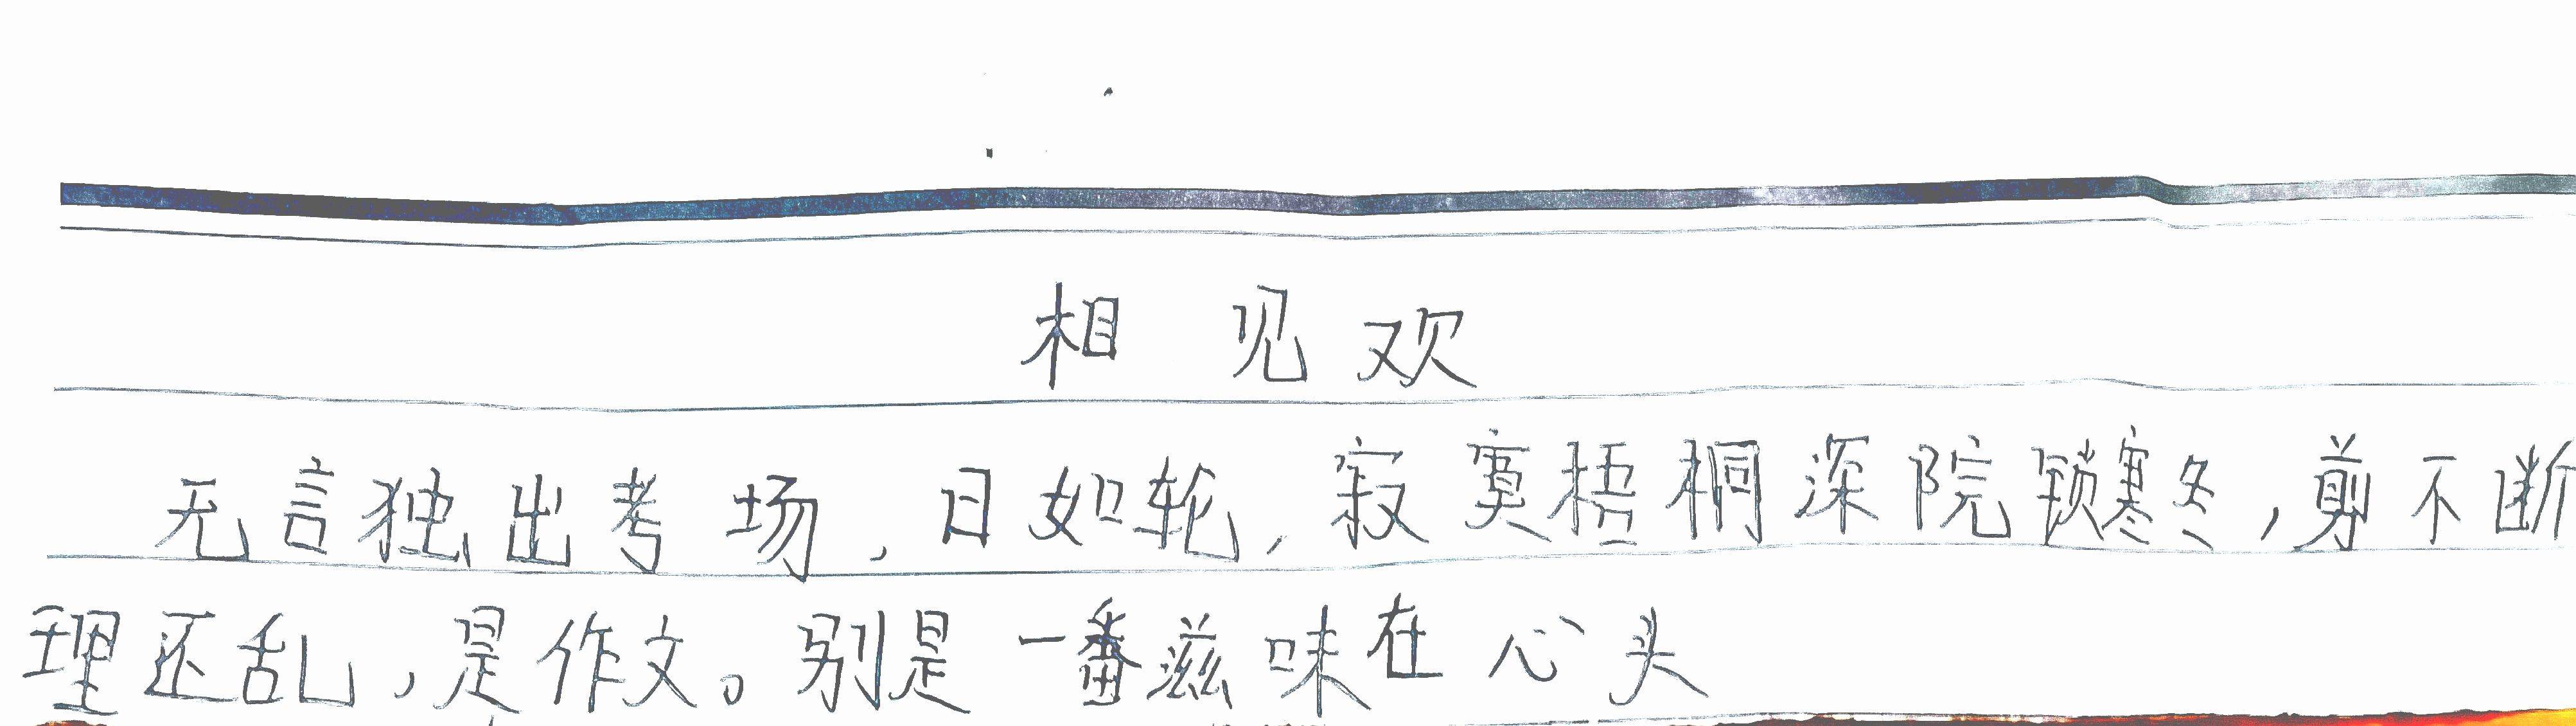 相见欢
无言独出考场，日如轮，寂寞梧桐深院锁寒冬，剪不断
理还乱，是作文。别是一番滋味在心头